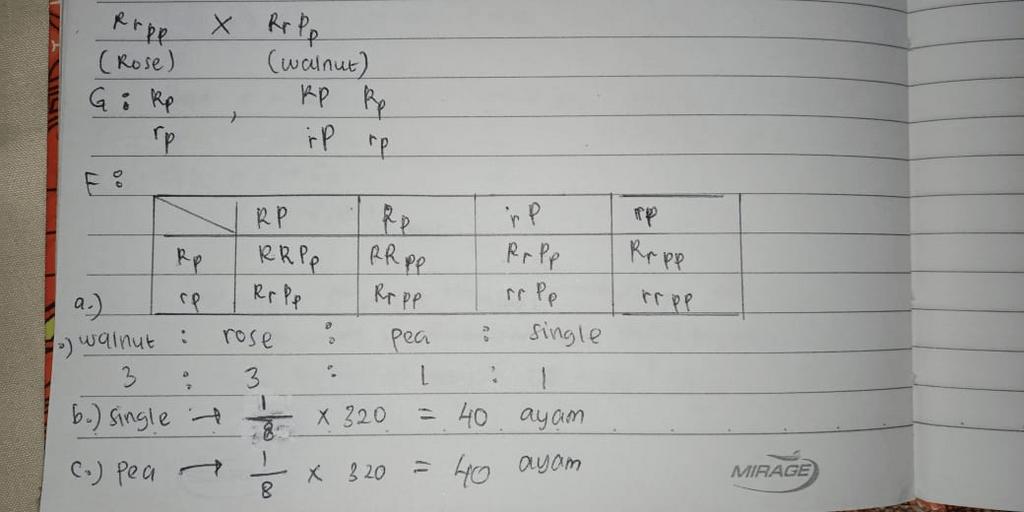 Rrpp X RrPp
(Rose) (walnut)
G : Rp , RP Rp
rp rP rp
F :
RP Rp rP rp
Rp RRPp RRpp RrPp Rrpp
rp RrPp Rrpp rrPp rrpp
a.)
walnut : rose : pea : single
3 : 3 : 1 : 1
b.) single → 1/8 x 320 = 40 ayam
c.) pea → 1/8 x 320 = 40 ayam
MIRAGE